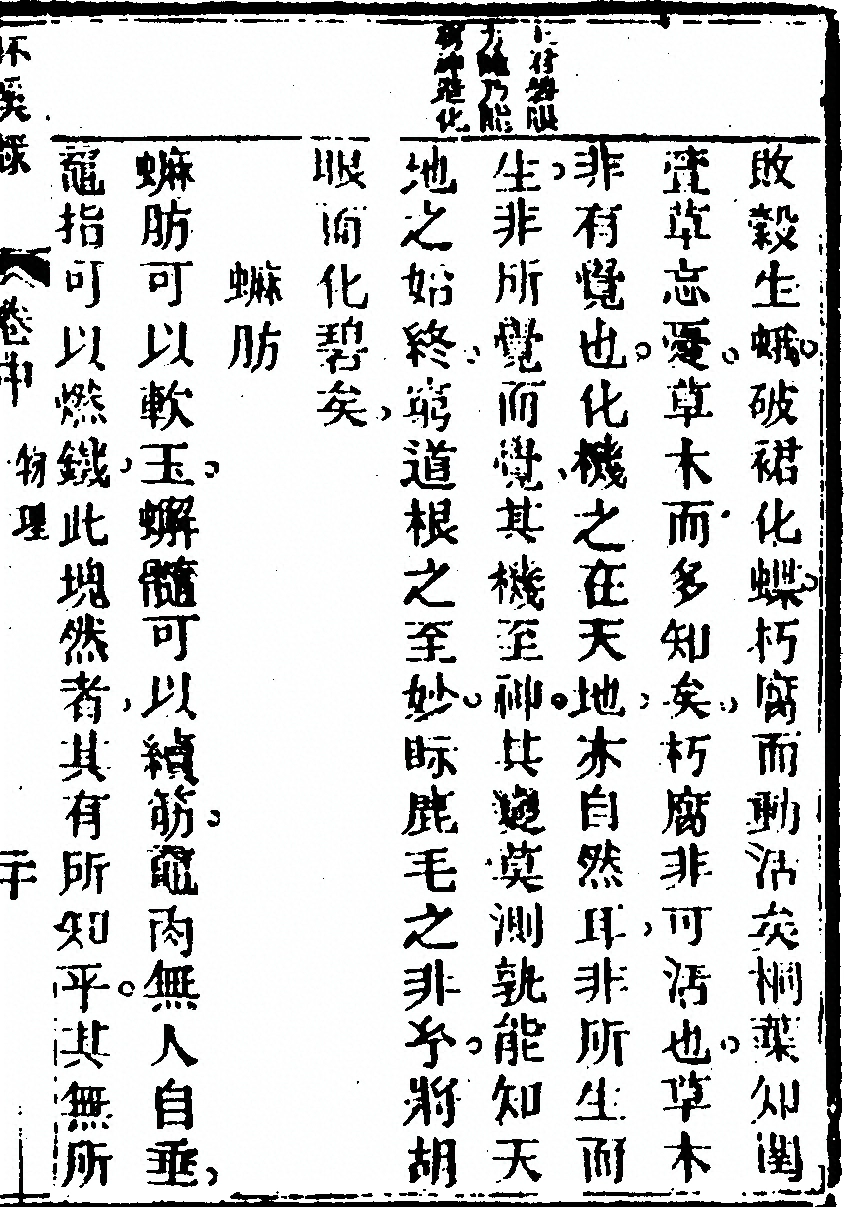 敗穀生蛾破裙化蝶朽腐而動活矣桐葉知閏
萱草忘憂草木而多知矣朽腐非可活也草木
非有覺也化機之在天地亦自然耳非所生而
生非所覺而覺其機至神其變莫測孰能知天
地之始終窮道根之至妙眎鹿毛之非乎將胡
眼而化碧矣
蟵肪
蟵肪可以軟玉蠏髓可以續筋黿肉無人自垂
黿指可以燃鐵此塊然者其有所知乎其無所
卷中
物理
二十